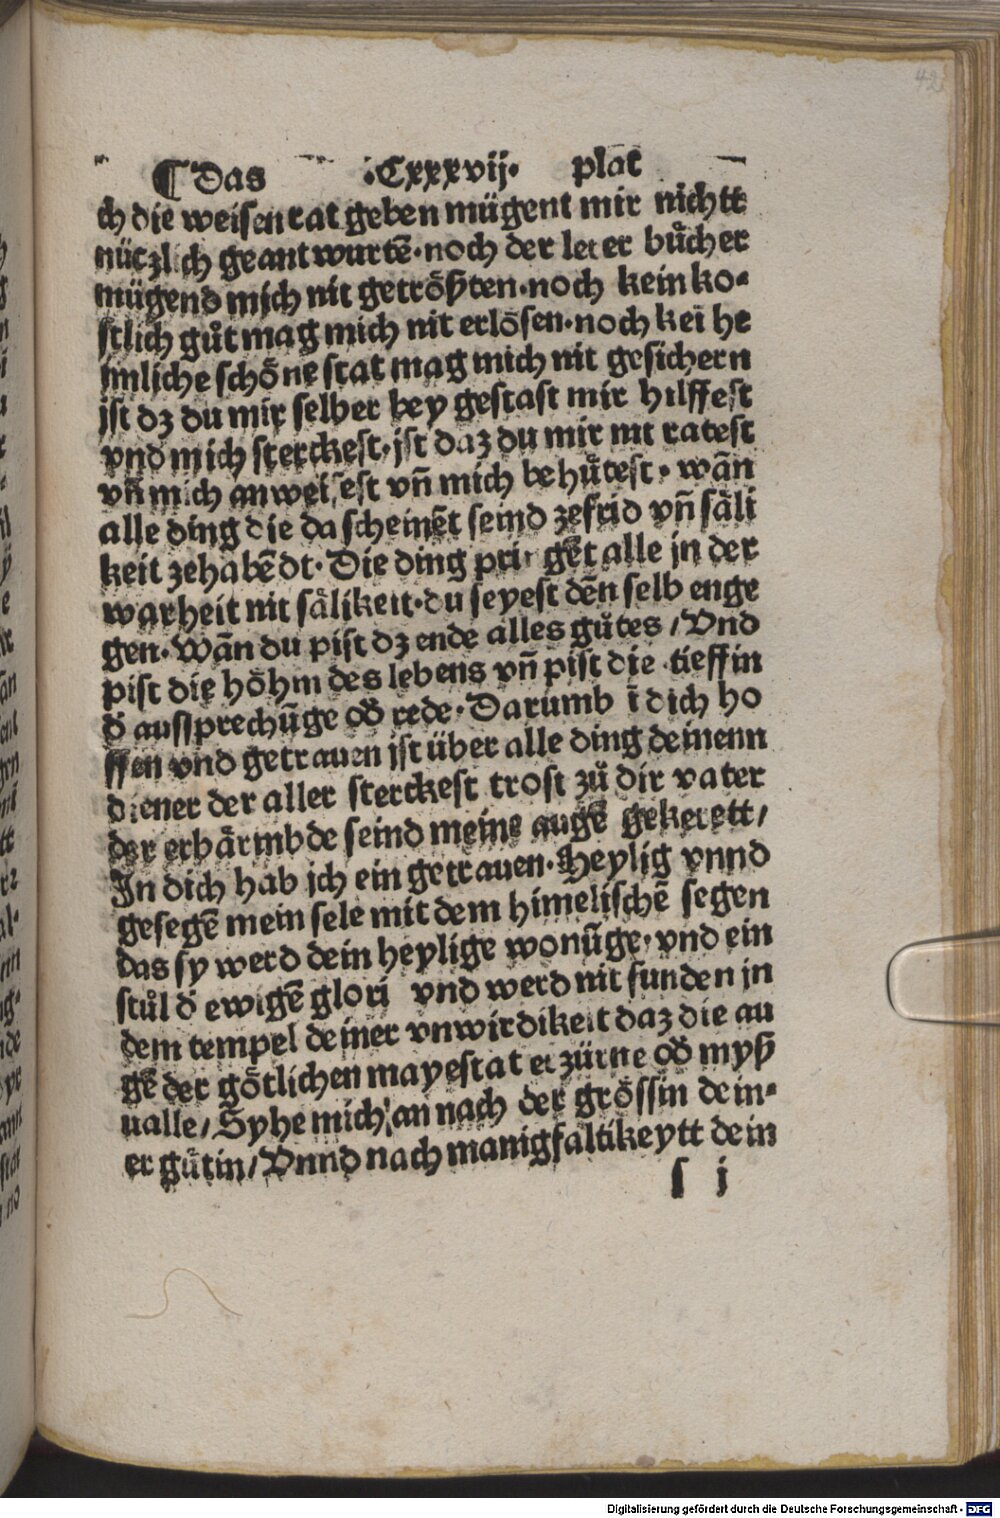 42
¶ Das ·Cxxxvij· plat
ch die weisen rat geben mügent mir nichtt
nützlich geantwurtē·noch der lerer bůcher
mügend mich nit getröſzten·noch kein ko⸗
ſtlich gůt mag mich nit erlöſen·noch kei he
imliche ſchöne ſtat mag mich nit geſichern
jſt dz du mir ſelber bey geſtaſt mir hilffeſt
vnd mich ſterckeſt·jſt daz du mir nit rateſt
vn̄ mich anweiſeſt vn̄ mich behůteſt· wān
alle ding die da ſcheinēt ſeind zefrid vn̄ ſäli
keit zehabēdt·Die ding pringēt alle jn der
warheit nit ſälikeit·du ſeyeſt dēn ſelb enge
gen·Wān du piſt dz ende alles gůtes/Vnd
piſt die höhin des lebens vn̄ piſt die tieffin
d̄ auſſprechūge od̄ rede·Darumb ī dich ho
ffen vnd getrauen jſt über alle ding deinenn
diener der aller ſterckeſt troſt zů dir vater
der erbärmbde ſeind meine augē gekerett/
In dich hab ich ein getrauen·Heylig vnnd
geſegē mein ſele mit dem himeliſchē ſegen
das ſy werd dein heylige wonūge·vnd ein
ſtůl d̄ ewigē glori vnd werd nit funden jn
dem tempel deiner vnwirdikeit daz die au
gē der götlichen mayeſtat erzürne od̄ myſz
ualle/Syhe mich an nach der gröſſin dein⸗
er gůtin/Vnnd nach manigfaltikeytt dein
ſ j
Digitalisierung gefördert durch die Deutsche Forschungsgemeinschaft · DFG